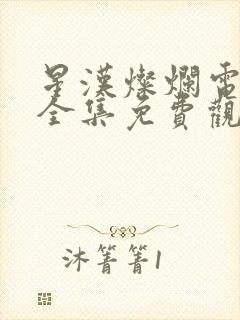 星漢燦爛電
全集免費觀
沐箐箐1